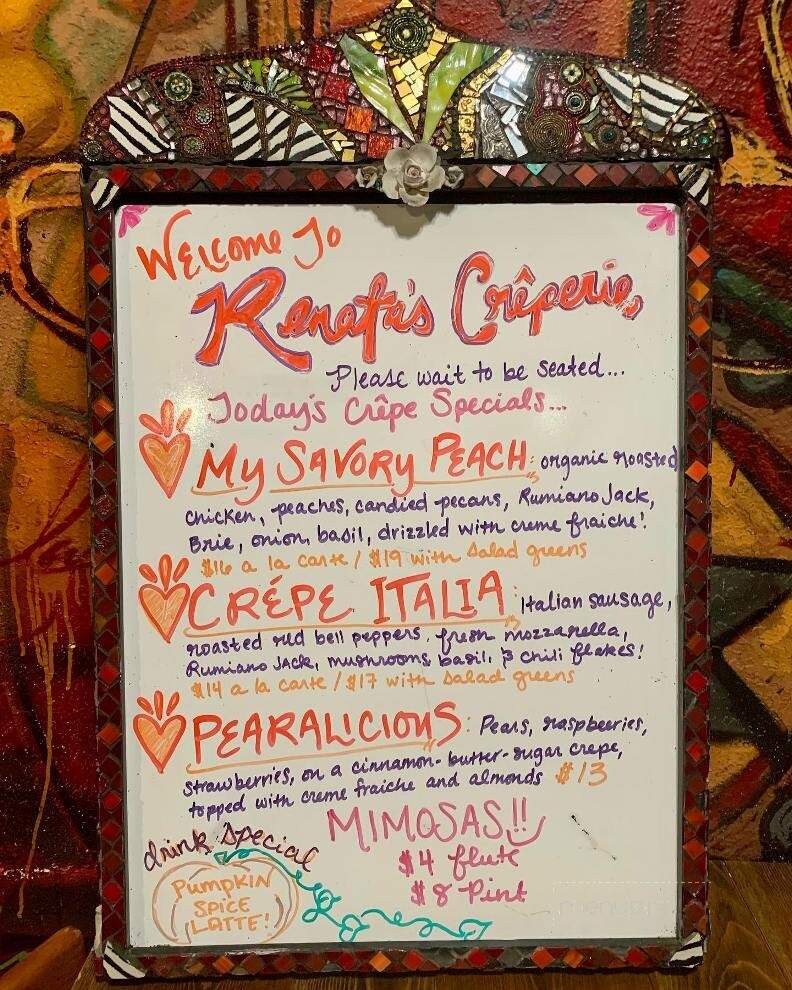 Welcome To
Renata's Crêperie,
Please wait to be seated...
Today's Crêpe Specials...
My Savory Peach: organic roasted
chicken, peaches, candied pecans, Rumiano Jack,
Brie, onion, basil, drizzled with creme fraiche!
$16 a la carte / $19 with salad greens
CRÉPE ITALIA: Italian sausage,
roasted red bell peppers, fresh mozzarella,
Rumiano Jack, mushrooms, basil, & chili flakes!
$14 a la carte / $17 with salad greens
PEARALICIOUS: Pears, raspbeeries,
strawberries, on a cinnamon-butter-sugar crepe,
topped with creme fraiche and almonds $13
MIMOSAS!!
$4 flute
$8 Pint
drink special
PUMPKIN
SPICE
LATTE!